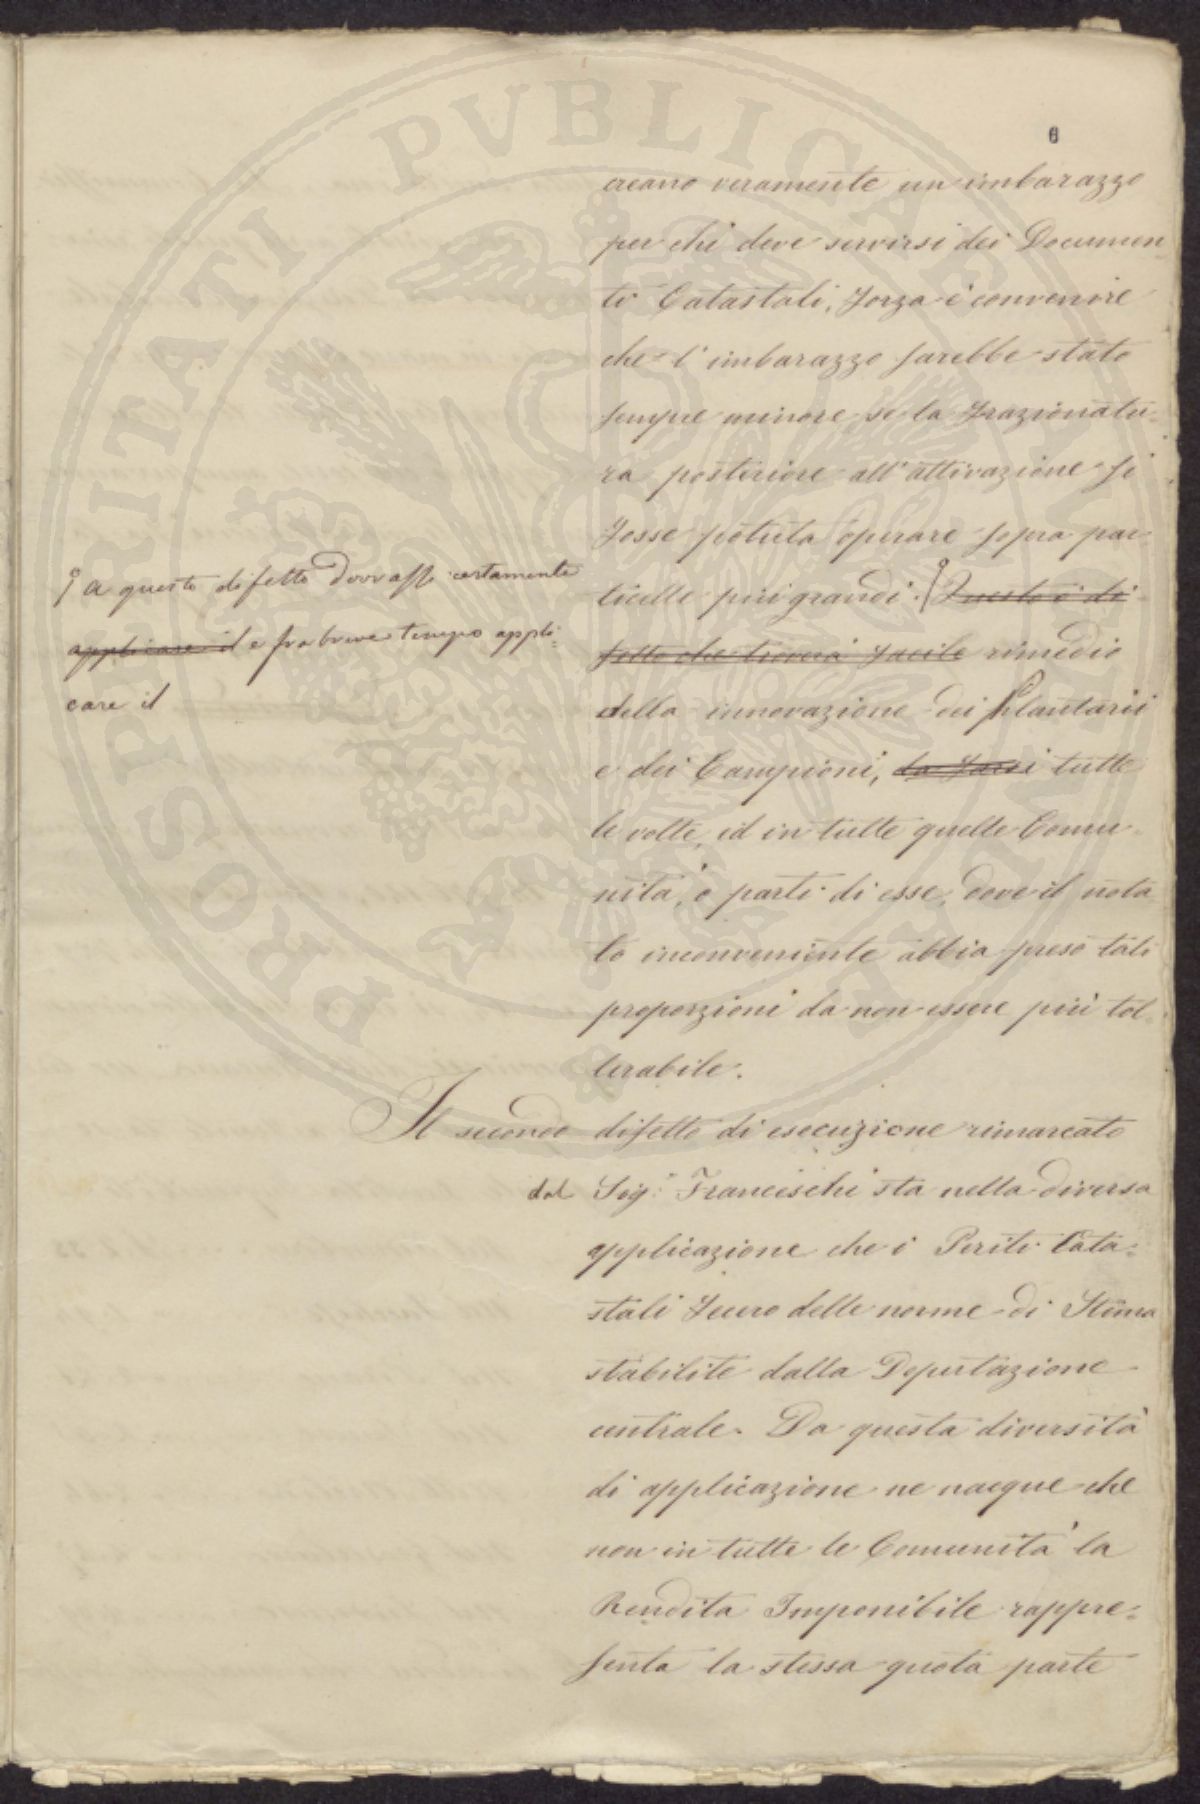 PROSPERITATI PVBLICAE
6
creano veramente un imbarazzo
per chi deve servirsi dei Documen
ti Catastali, forza è convenire
che l'imbarazzo sarebbe stato
sempre minore se la frazionatu-
ra posteriore all'attivazione si
fosse potuta operare sopra par-
ticelle più grandi. Questo è di
fetto che troverà facile rimedio
della innovazione dei Plantarii
e dei Campioni, da farsi tutte
le volte, ed in tutte quelle Comu-
nità, o parti di esse, dove il nota
to inconveniente abbia preso tali
proporzioni da non essere più tol-
lerabile.
a questo difetto dovrassi certamente
applicare il e fra breve tempo appli-
care il
Il secondo difetto di esecuzione rimarcato
dal Sig.r Franceschi sta nella diversa
applicazione che i Periti Cata-
stali fecero delle norme di Stima
stabilite dalla Deputazione
centrale. Da questa diversità
di applicazione ne nacque che
non in tutte le Comunità la
Rendita Imponibile rappre-
senta la stessa quota parte